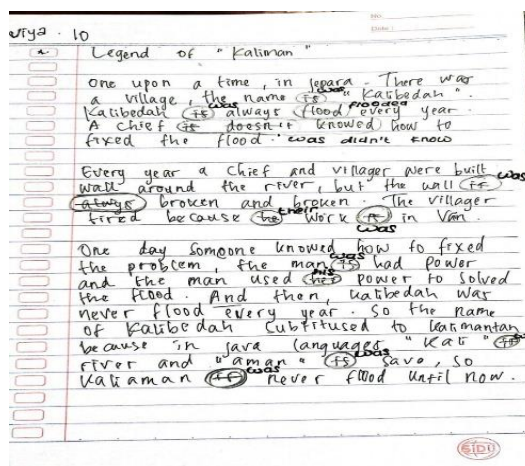 No:
Date:
viya. 10
Legend of "Kaliman"
One upon a time, in Jepara. There was
a village, the name is was "Kalibedah".
Kalibedah is was always flood flooded every year.
A chief is doesn't knowed how to
fixed the flood. was didn't know
Every year a chief and villager were built
wall around the river, but the wall is was
always broken and broken. The villager
tired because he their work is was in vain.
One day someone knowed how to fixed
the problem, the man is was had power
and the man used her his power to solved
the flood. And then, kalibedah was
never flood every year. So the name
of Kalibedah cubtitused to kalimantan
because in java languages "Kali" is was
river and "aman" is was save, so
Kaliaman is was never flood until now.
SIDU